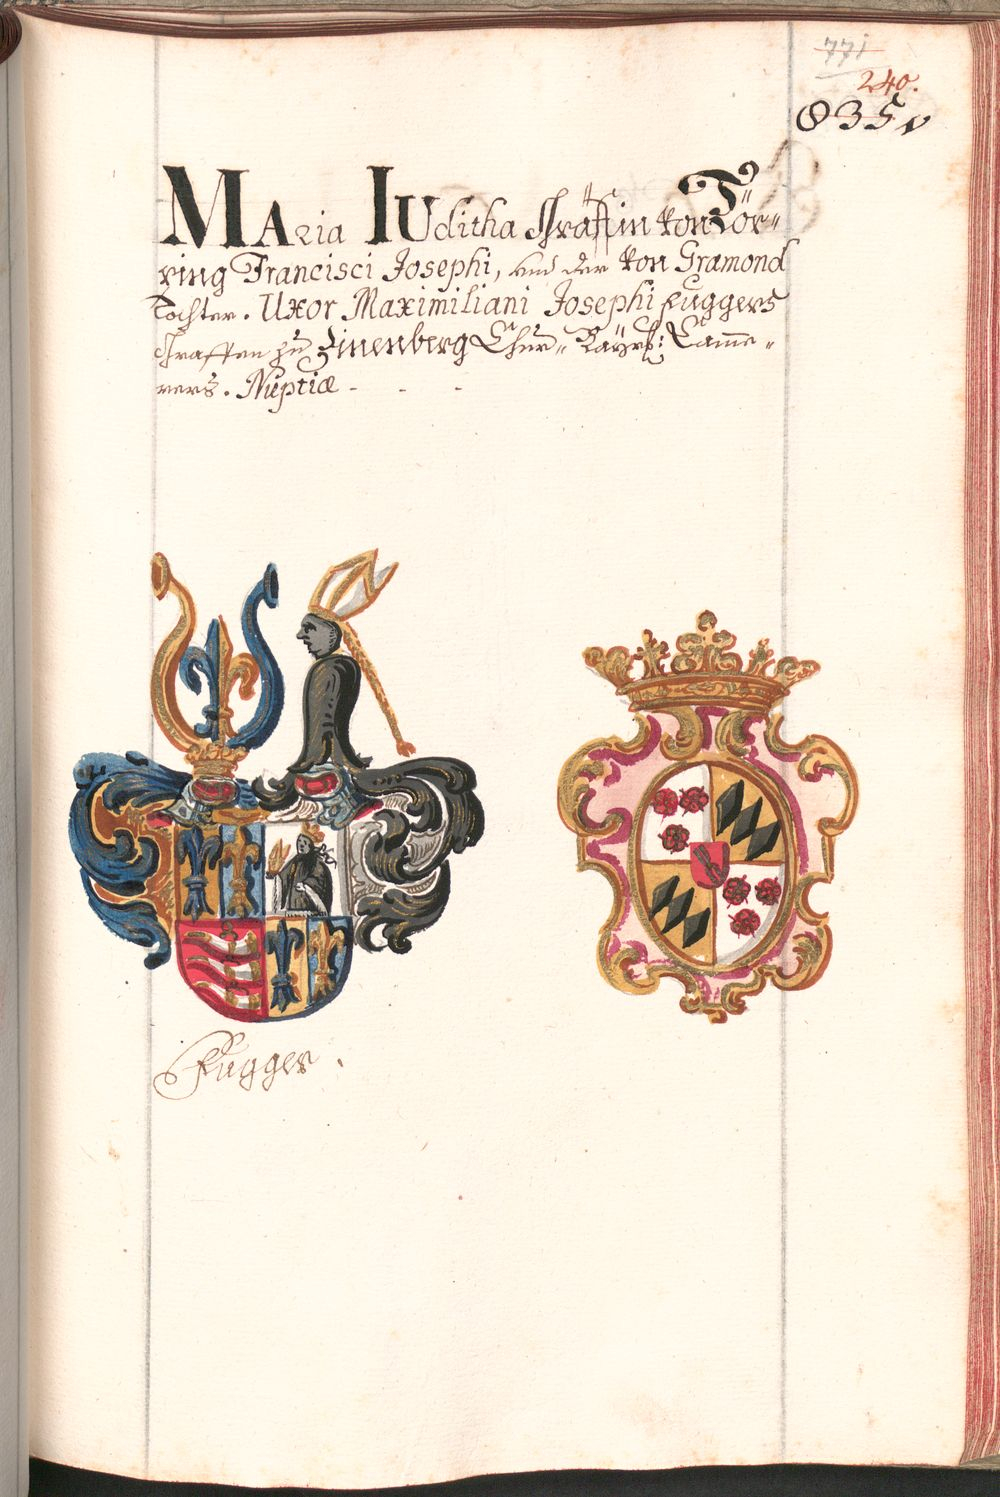 771
240.
835v
MAria IUditha Gräffin von Tör-
ring Francisci Josephi, und der von Gramond
Tochter. Uxor Maximiliani Josephi Fuggers
Graffen zu Zinenberg Chur- Bäyrl: Camme-
rers. Nuptiæ - - -
Fugger.